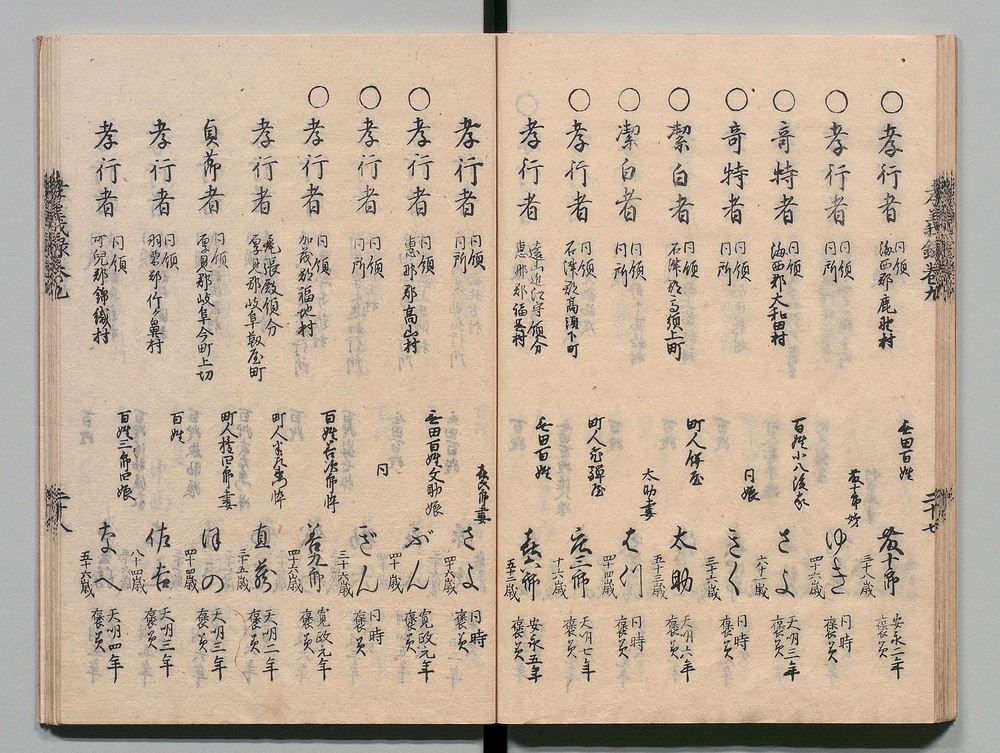 孝義録巻九
二十七
○孝行者 同領 海西郡鹿野村 無田百姓 藤十郎 三十八歳 安永二年 褒美
○孝行者 同領 同所 藤十郎妹 ゆき 四十六歳 同時 褒美
○奇特者 同領 海西郡大和田村 百姓小八後家 さよ 六十一歳 天明三年 褒美
○奇特者 同領 同所 同娘 きく 三十六歳 同時 褒美
○潔白者 同領 石津郡高須上町 町人餅屋 太助 五十三歳 天明六年 褒美
○潔白者 同領 同所 太助妻 四十四歳 同時 褒美
○孝行者 同領 石津郡高須下町 町人 庄三郎 十六歳 天明七年 褒美
○孝行者 遠山近江守領分 恵那郡福岡村 無田百姓 五十二歳 安永五年 褒美
孝行者 同領 同所 妻 さよ 四十八歳 同時 褒美
○孝行者 同領 恵那郡高山村 無田百姓文助娘 ぶん 四十歳 寛政元年 褒美
○孝行者 同領 同所 同 ぎん 三十六歳 同時 褒美
○孝行者 同領 加茂郡福地村 百姓若次郎悴 若九郎 四十六歳 寛政元年 褒美
孝行者 尾張殿領分 厚見郡岐阜靱屋町 町人 悴 直蔵 三十五歳 天明二年 褒美
貞節者 同領 厚見郡岐阜今町上切 町人 妻 ほの 四十四歳 天明三年 褒美
孝行者 同領 羽栗郡竹ヶ鼻村 百姓 佐吉 八十四歳 天明三年 褒美
孝行者 同領 可児郡錦織村 百姓三郎四娘 なへ 五十六歳 天明四年 褒美
孝義録巻九
二十八